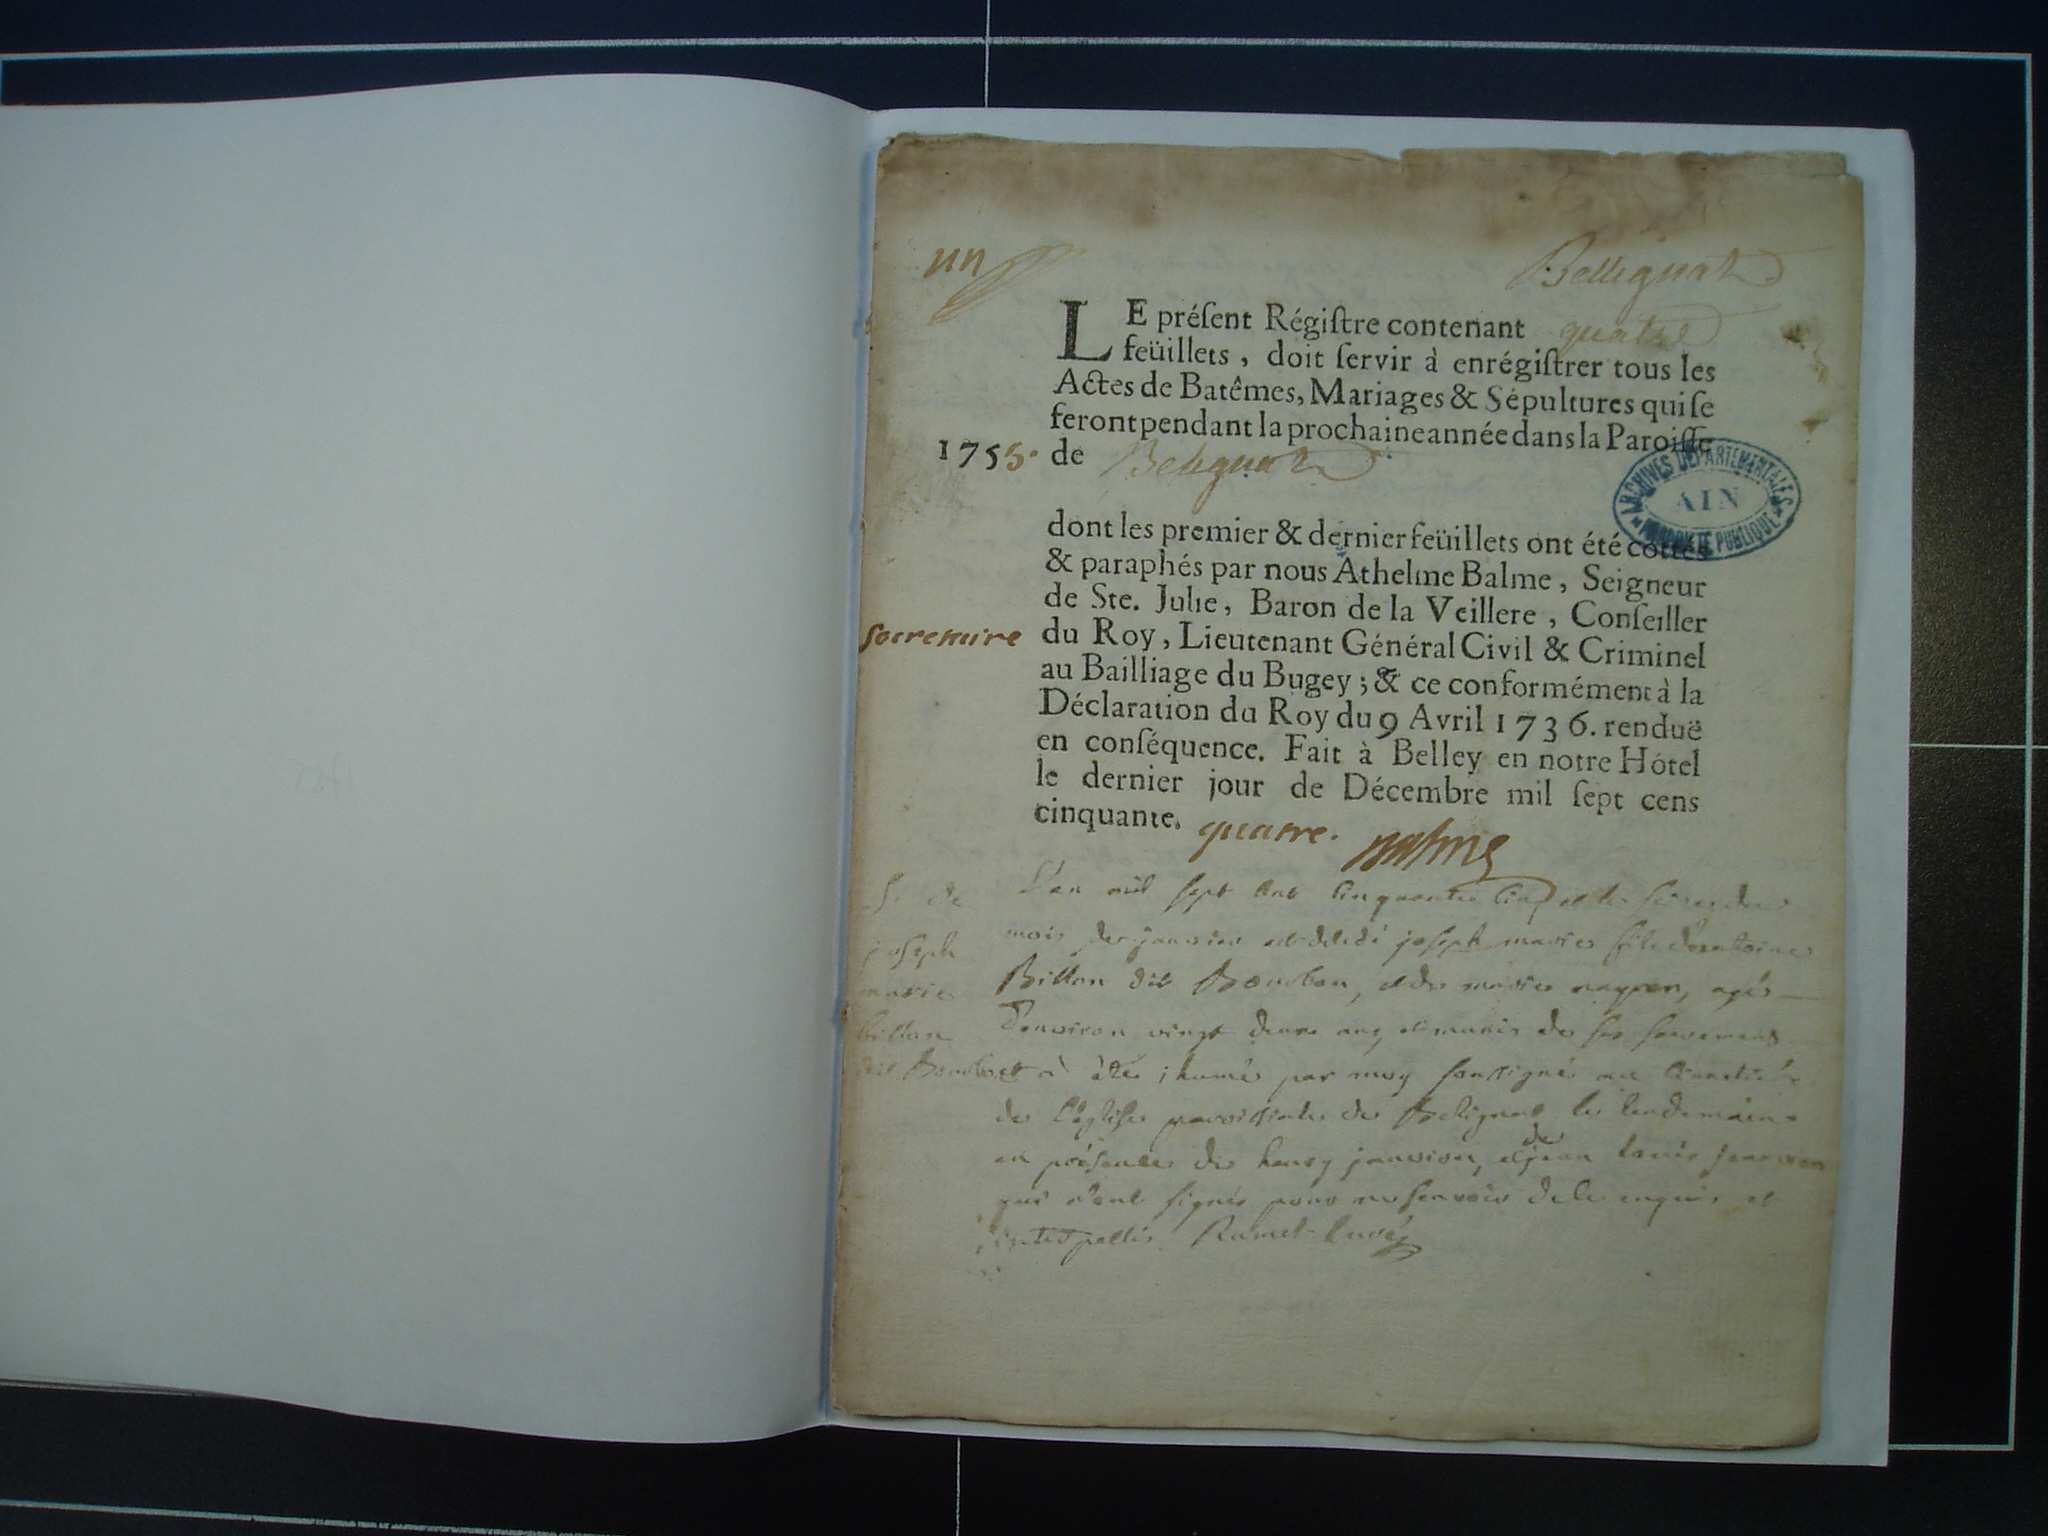 un
Bellignat
LE préſent Régiſtre contenant quatre
feüillets, doit ſervir à enrégiſtrer tous les
Actes de Batêmes, Mariages & Sépultures qui ſe
feront pendant la prochaine année dans la Paroiſſe
1755. de Belignat
ARCHIVES DEPARTEMENTALES
AIN
PROPRIETE PUBLIQUE
dont les premier & dernier feüillets ont été cottés
& paraphés par nous Athelme Balme, Seigneur
de Ste. Julie, Baron de la Veillere, Conſeiller
Secretaire du Roy, Lieutenant Général Civil & Criminel
au Bailliage du Bugey; & ce conformément à la
Déclaration du Roy du 9 Avril 1736. renduë
en conſéquence. Fait à Belley en notre Hôtel
le dernier jour de Décembre mil ſept cens
cinquante. quatre. Balme
S. de
joseph
marie
billon
dit Bourbon
L'an mil sept cent cinquante cinq et le seize du
mois de janvier est décédé joseph marie fils d'antoine
Billon dit Bourbon, et de marie, agé
d'environ vingt deux ans, et munis de ses sacrements
et à été ihumé par moy soussigné au cimetière
de l'église paroissiale de Belignat le lendemain
en présence de henry janvion, et de jean louis
qui n'ont signés pour ne sçavoir de ce enquis et
interpellés. Ramel curé